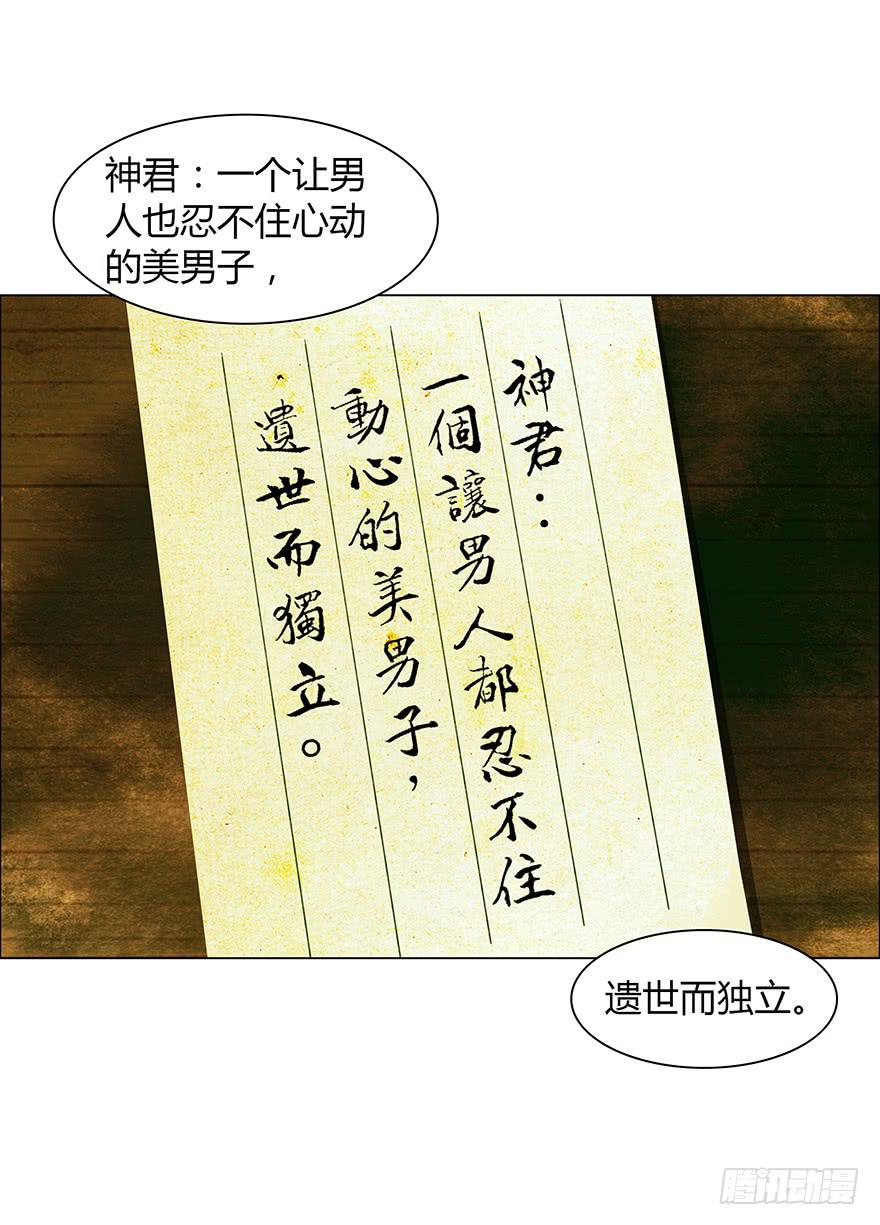 神君：一个让男
人也忍不住心动
的美男子，
神君：
一個讓男人都忍不住
動心的美男子，
遺世而獨立。
遗世而独立。
腾讯动漫